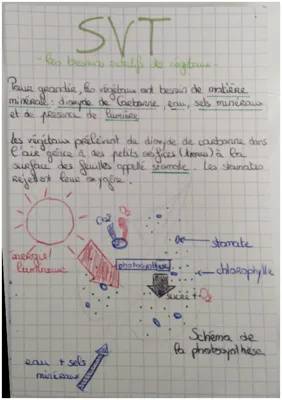 SVT
- Les besoins nutritifs des végétaux -
Pour grandir, les végétaux ont besoin de matière
minérale : dioxyde de Carbonne, eau, sels minéraux
et de présence de lumière.
Les végétaux prélèvent du dioxyde de carbonne dans
l'air grâce à des petits orifices (trous) à la
surface des feuilles appellé stomate. Les stomates
rejettent leur oxygène.
CO2
O2
énergie
lumineuse
photosynthèse
stomate
chlorophylle
sucre + O2
Schéma de
la photosynthèse
eau + sels
minéraux